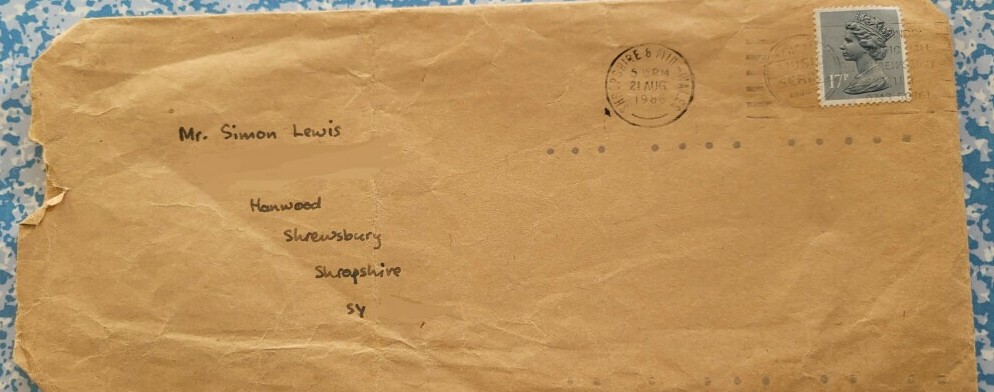 SHROPSHIRE & MID-WALES
5 15 PM
21 AUG
1986
17P
Mr. Simon Lewis
Hanwood
Shrewsbury
Shropshire
SY